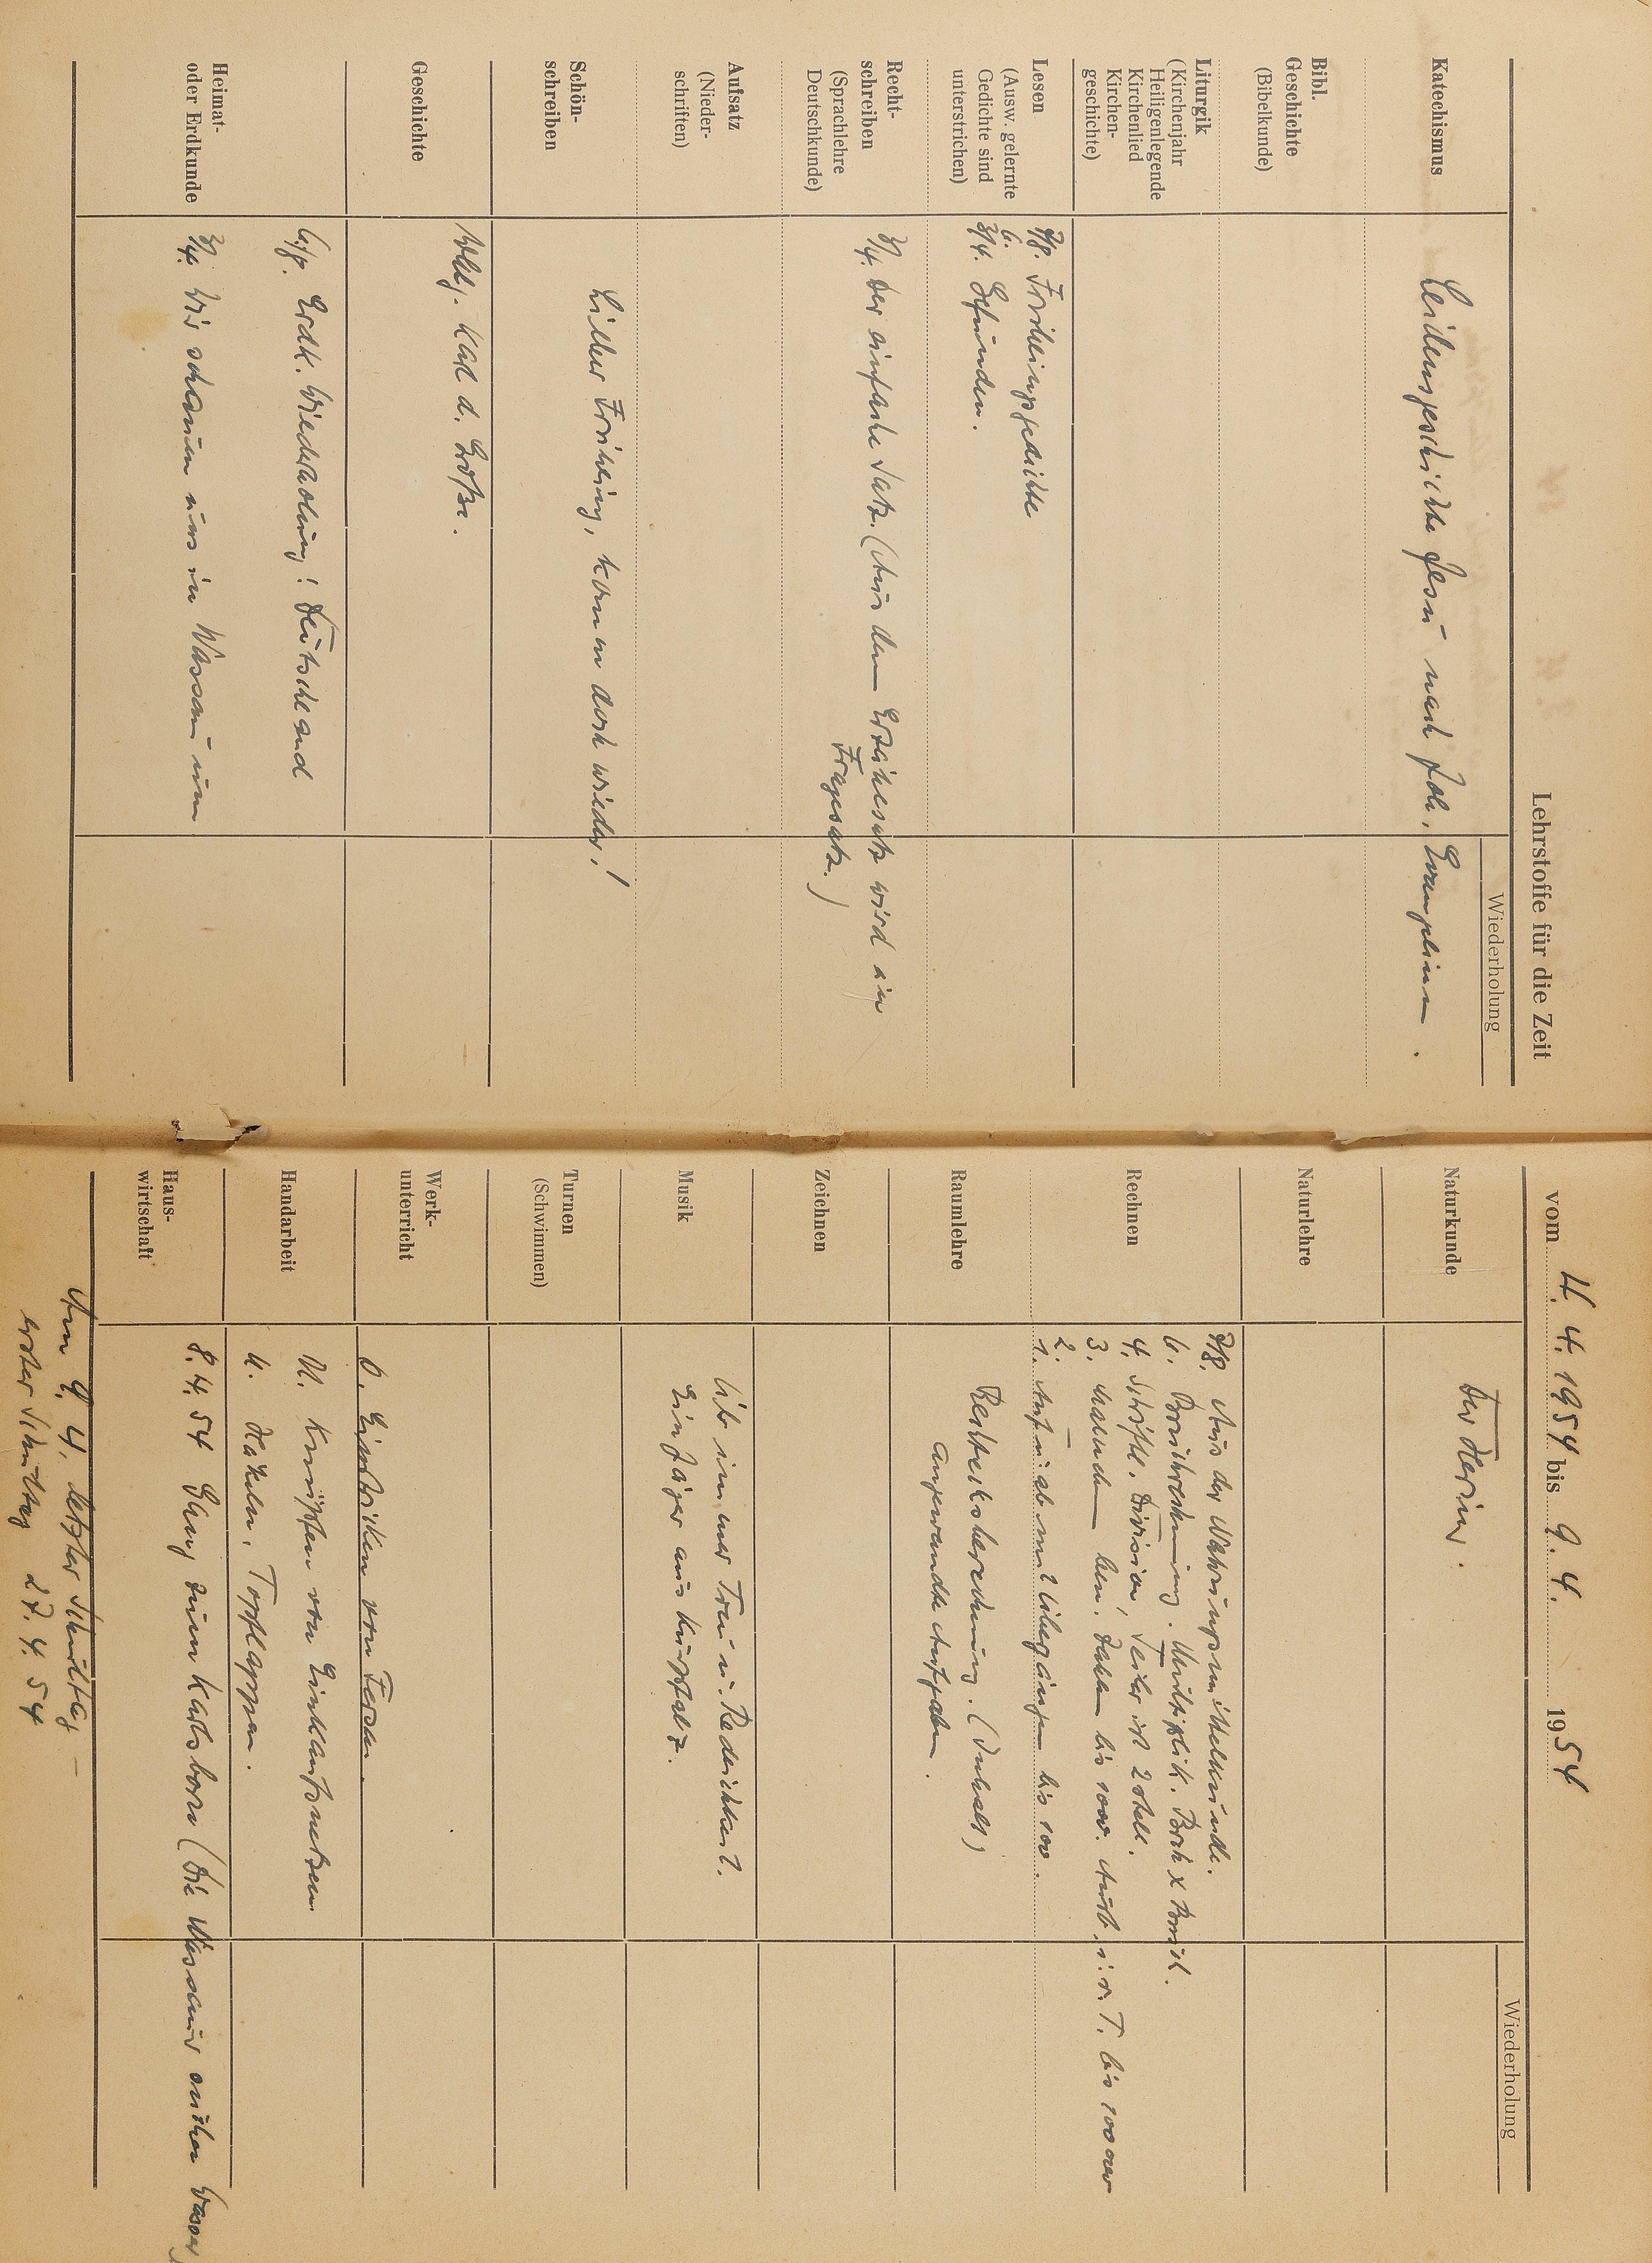 Lehrstoffe für die Zeit
Wiederholung
Katechismus
Leidensgeschichte Jesu nach Joh. Evangelium.
Bibl.
Geschichte
(Bibelkunde)
Liturgik
(Kirchenjahr
Heiligenlegende
Kirchenlied
Kirchen-
geschichte)
Lesen
(Ausw. gelernte
Gedichte sind
unterstrichen)
7/8. Frühlingsgedichte
6.
3/4. Gefunden.
Recht-
schreiben
(Sprachlehre
Deutschkunde)
3/4. Der einfache Satz. (Aus dem Erzählsatz wird ein
Fragesatz.)
Aufsatz
(Nieder-
schriften)
Schön-
schreiben
Lieber Frühling, komm doch wieder!
Geschichte
Karl d. Große.
Heimat-
oder Erdkunde
Erdk. Wiederholung: Deutschland
3/4. Wir schauen uns in um
vom 4. 4. 1954 bis 9. 4. 1954
Wiederholung
Naturkunde
Der Hering.
Naturlehre
Rechnen
7/8. Aus der Nahrungsmittelkunde.
6. Bruchrechnung. Multiplik. Bruch x Bruch.
4. Schriftl. Division, Teiler ist 2 stell.
3. Zahlen bis 1000. bis 100 über
2.
1. Auf u. ab mit Übergängen bis 100.
Raumlehre
(Inhalt)
angewandte Aufgaben.
Zeichnen
Musik
Üb immer Treu u. Redlichkeit.
Ein Jäger aus Kurpfalz.
Turnen
(Schwimmen)
Werk-
unterricht
Handarbeit
O. von Fersen.
M. Knüpfen von Einkaufsnetzen
U. Häkeln, Topflappen.
Haus-
wirtschaft
8. 4. 54 Gang zum Karlsborn (Die suchen Wasser)
Am 9. 4. letzter Schultag –
erster Schultag 27. 4. 54